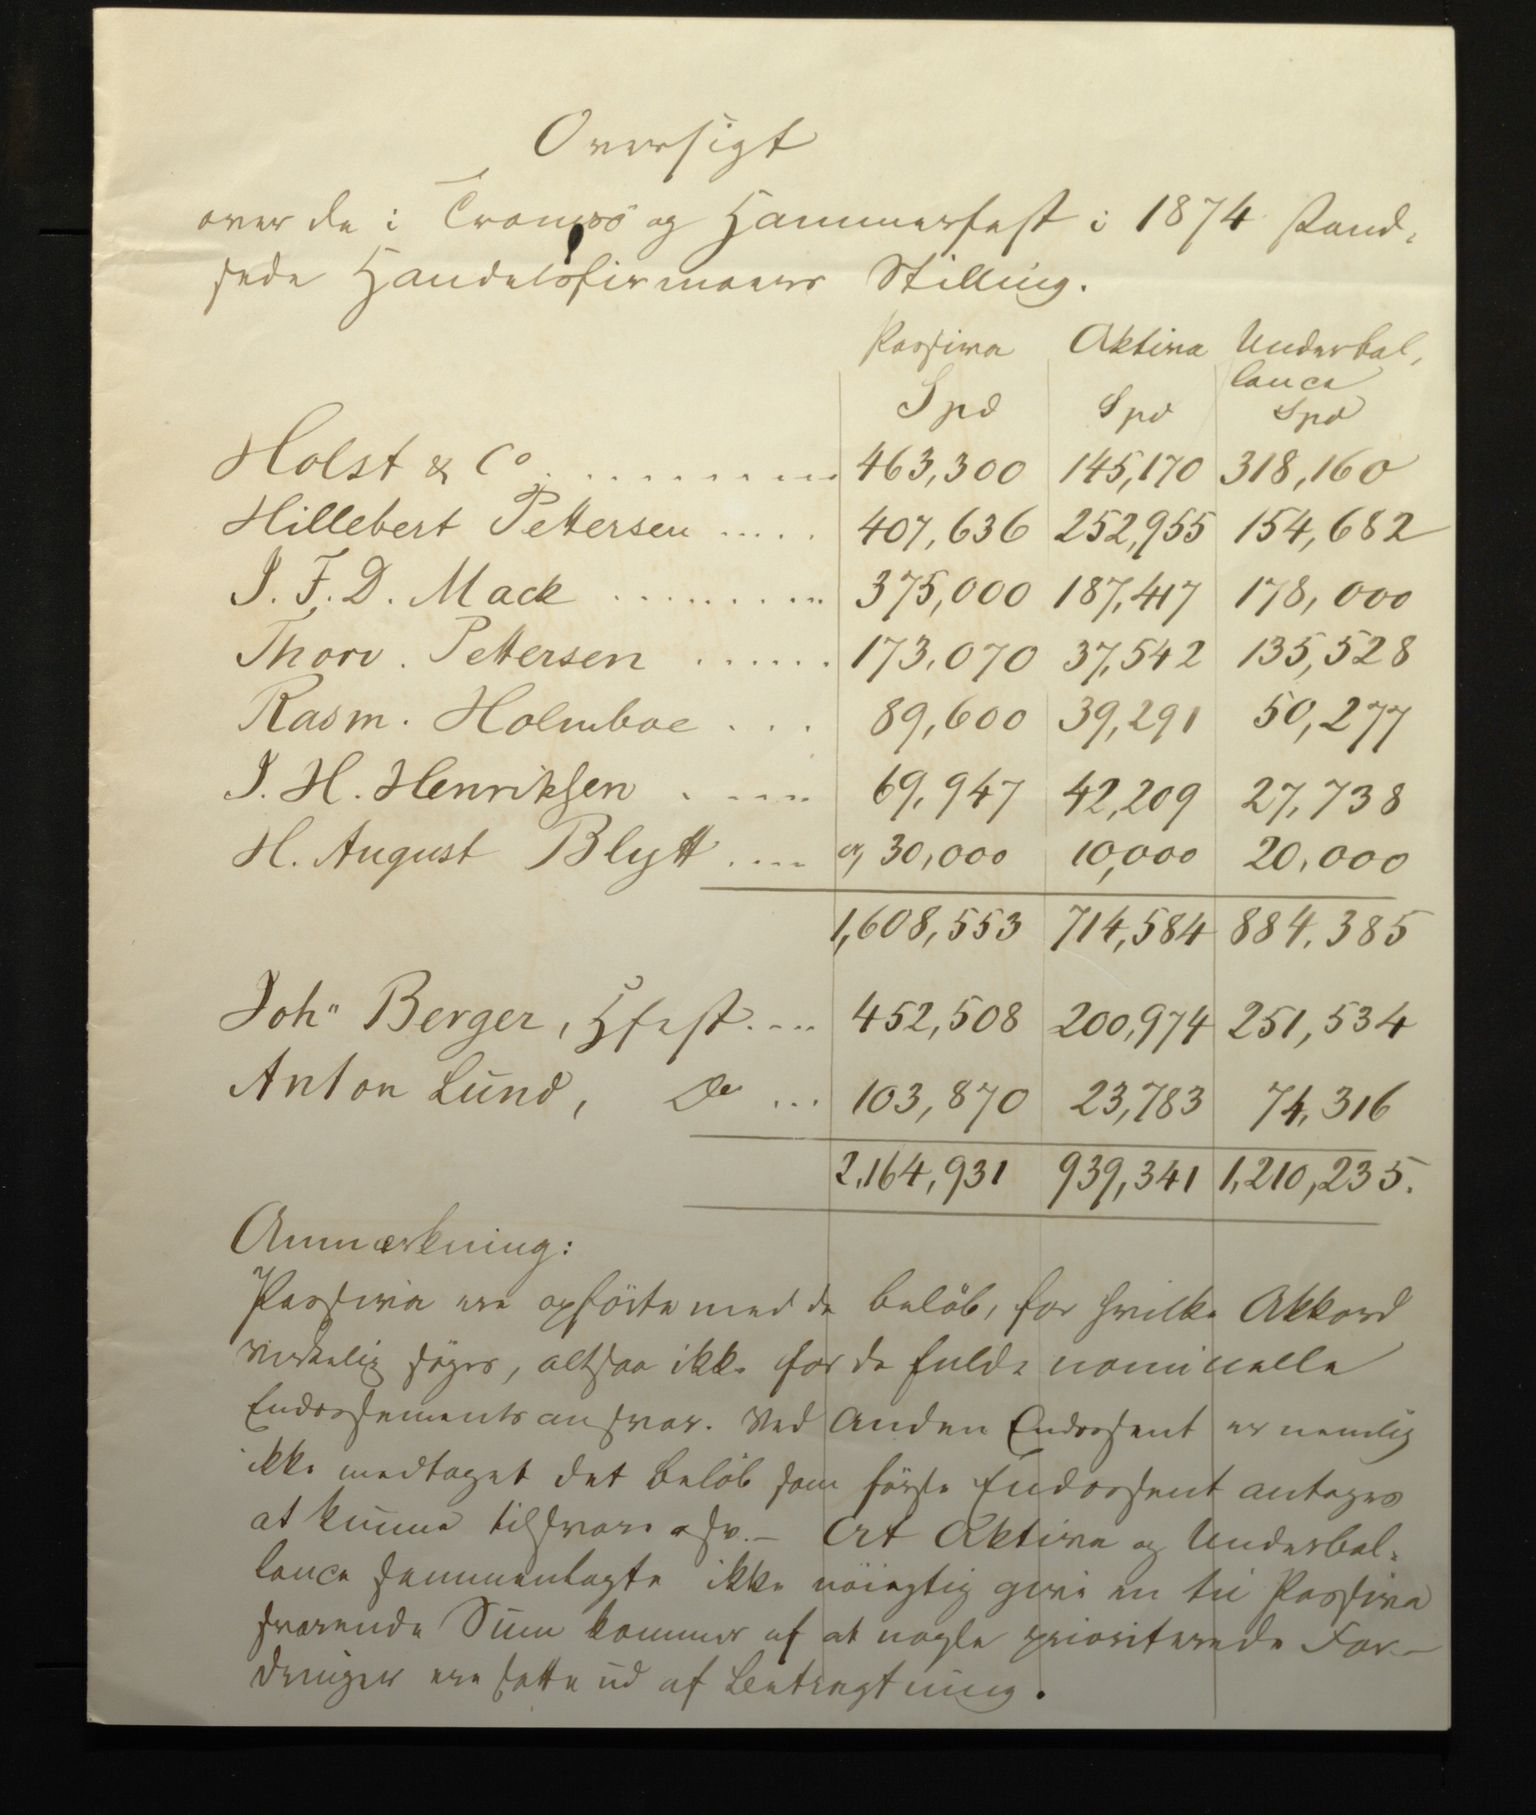 Oversigt
over de i Tromsö og Hammerfest i 1874 stand-
sede Handelsfirmaers Stilling.
Passiva Aktiva Underbal-
lance
Spd Spd Spd
Holst & Co. ......... 463,300 145,170 318,160
Hillebert Pettersen ..... 407,636 252,955 154,682
J. F. D. Mack ......... 375,000 187,417 178,000
Thorv. Pettersen ...... 173.070 37,542 135,528
Rasm. Holmboe ... 89,600 39,291 50,277
J. H. Henriksen .... 69,947 42,209 27,738
H. August Blytt .... 30,000 10,000 20,000
1,608,553 714,584 884,385
Joh" Berger, Hfest.... 452,508 200,974 251,534
Anton Lund, Do ... 103,870 23,783 74,316
2,164,931 939,341 1,210,235.
Anmærkning:
Passiva ere opförte med de Beløb, for hvilke Akkord
virkelig søges, altsaa ikke for de fulde nominelle
Endossementsansvar. Ved Anden Endossent er nemlig
ikke medtaget det Beløb som første Endossent antages
at kunne tilsvare osv.— At Aktiva og Underbal-
lance sammenlagte ikke nöiagtig give en til Passiva
svarende Sum kommer af at nogle prioriterede For-
dringer ere satte ud af Betragtning.